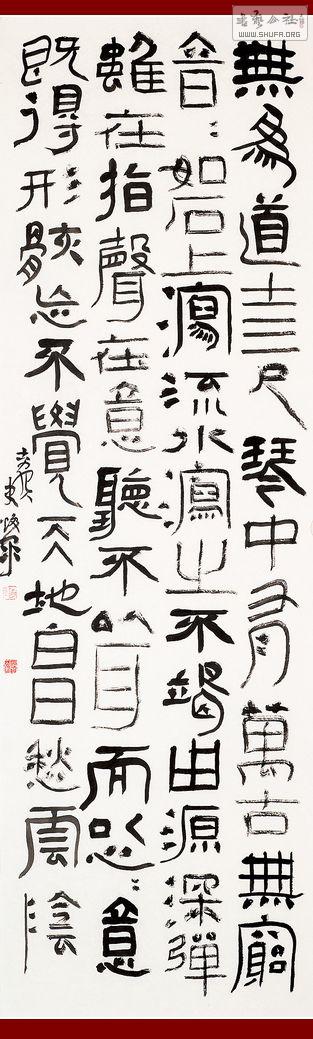 無為道士三尺琴中有萬古無窮
音〻如石上瀉流水瀉之不竭由源深彈
雖在指聲在意聽不以耳而以心〻意
既得形骸忘不覺天地白日愁雲陰
書藝公社
WWW.SHUFA.ORG